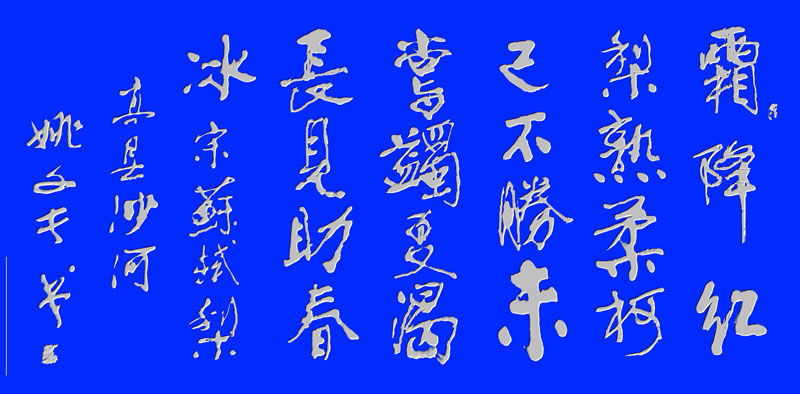 霜降红
梨熟柔柯
已不勝未
嘗蠲夏渴
長見助春
冰宋蘇軾梨
沙河
姚文